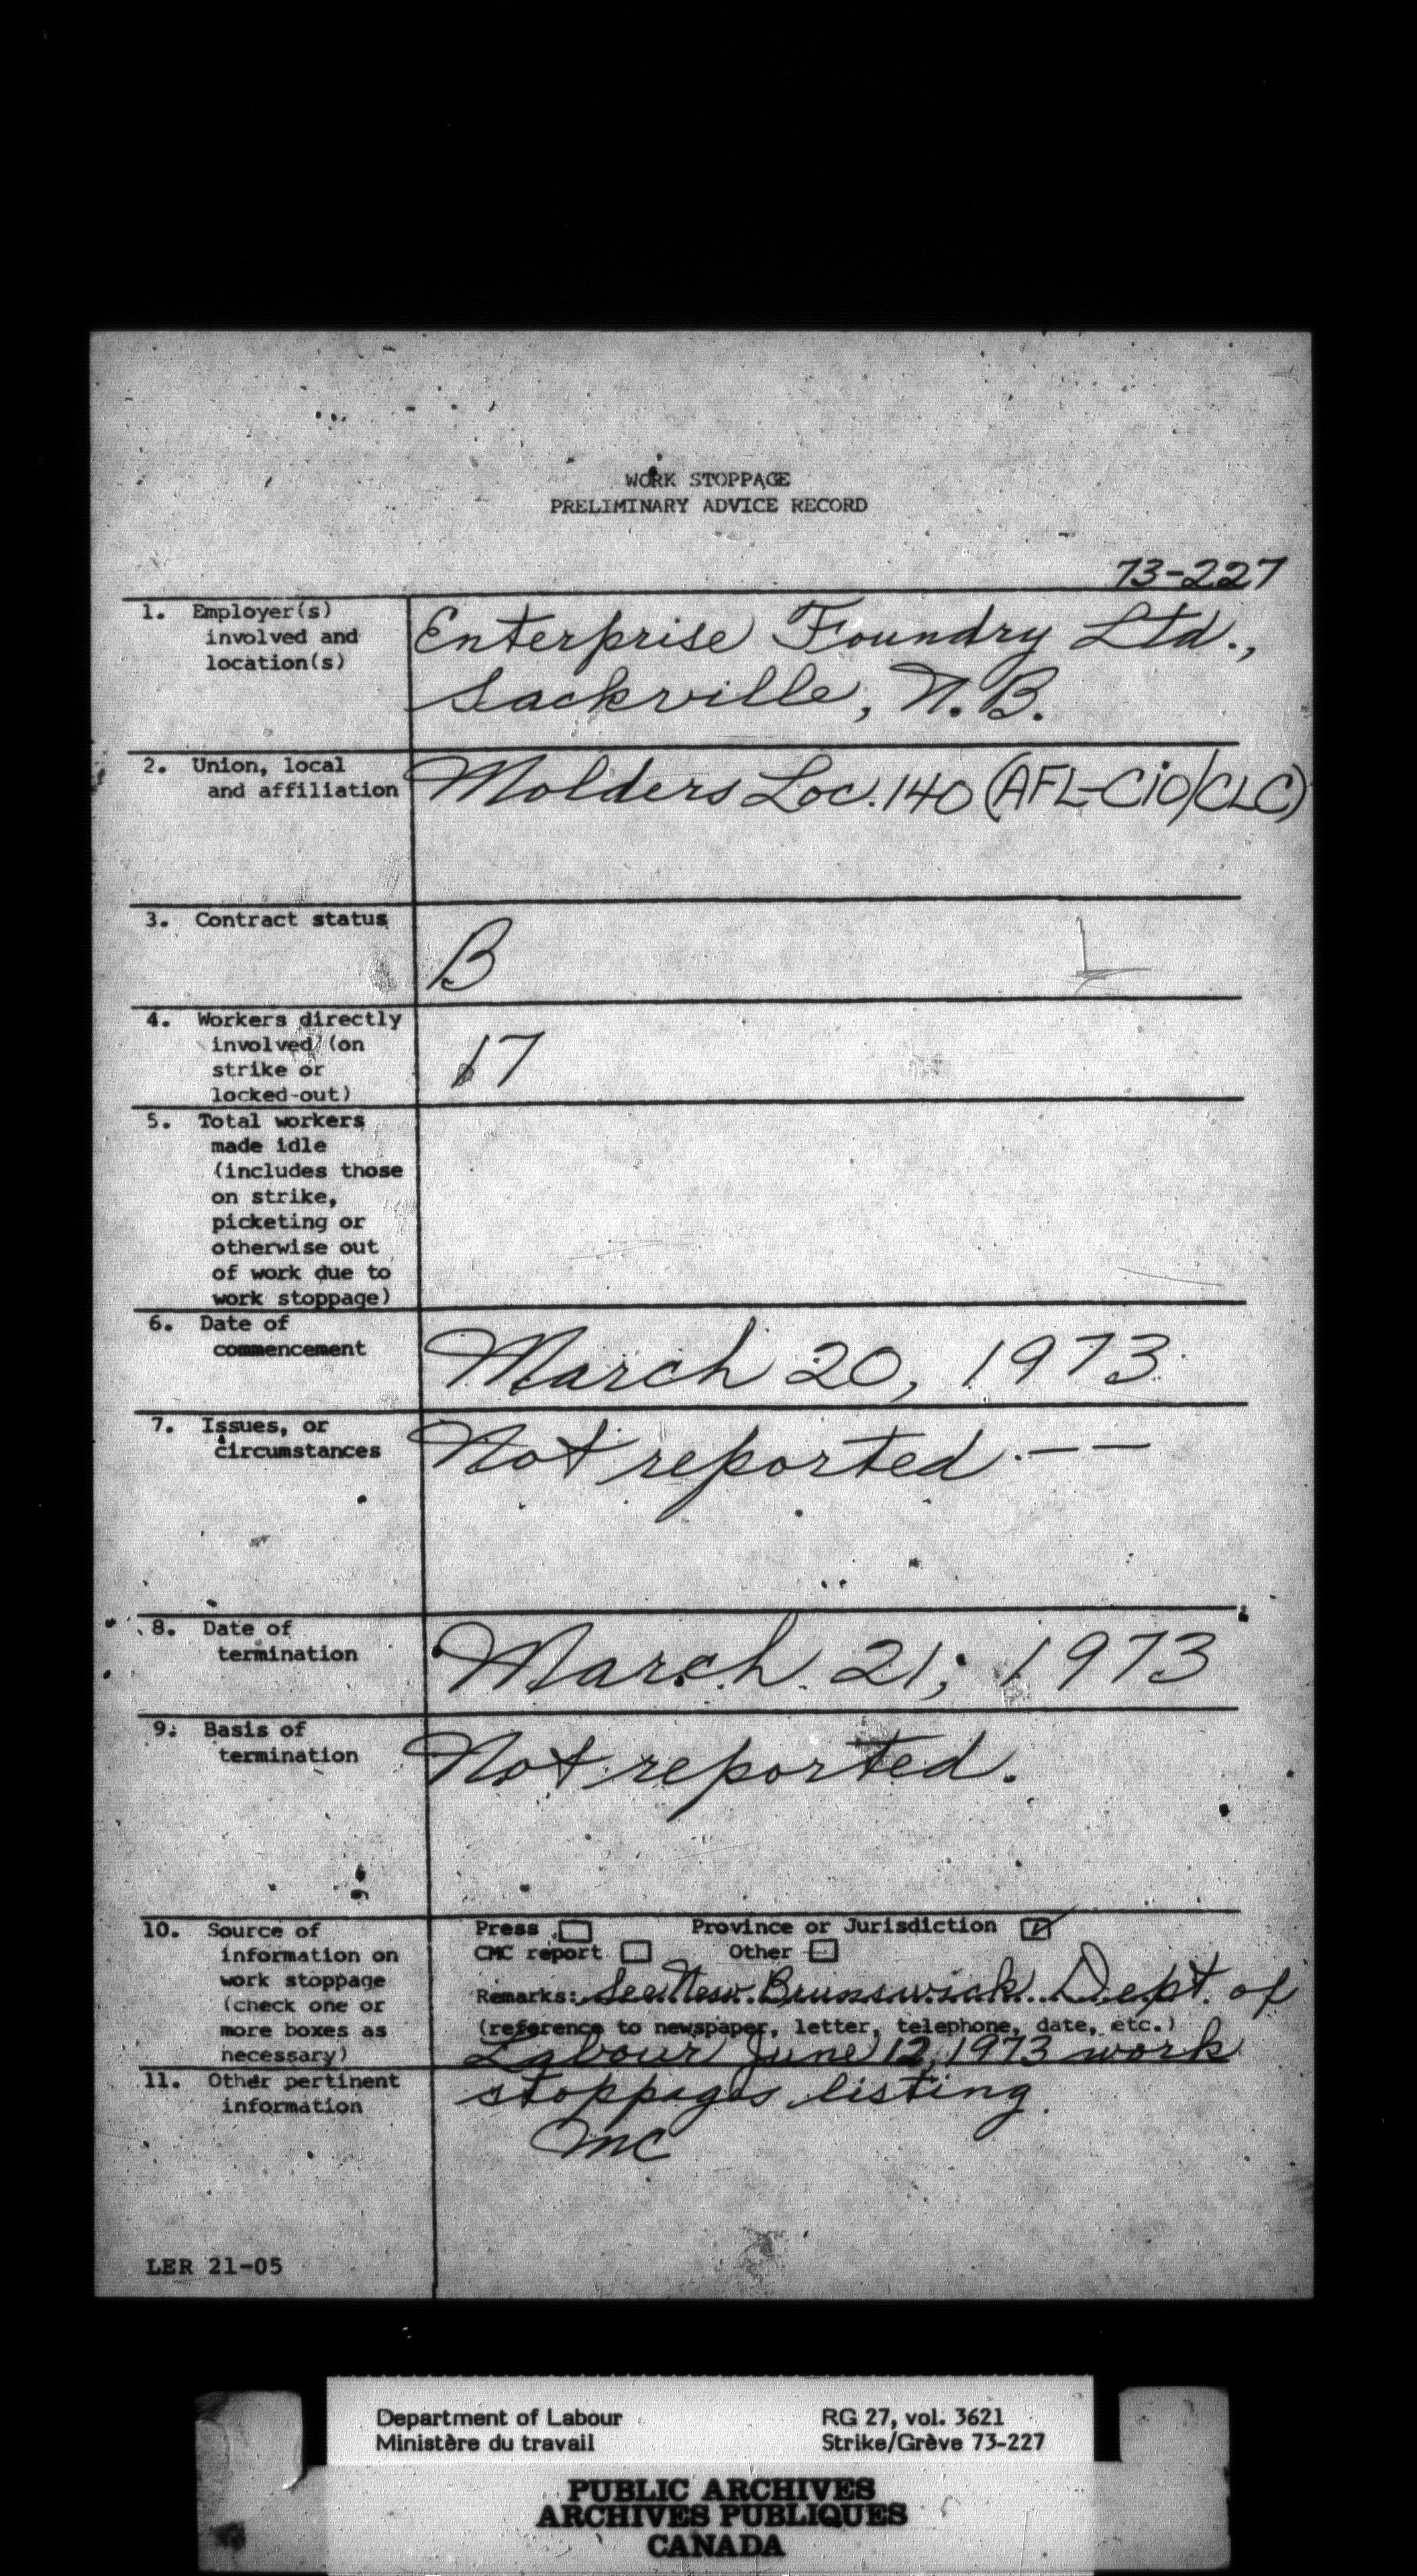 WORK STOPPAGE
PRELIMINARY ADVICE RECORD
73-227
1. Employer(s)
involved and
location(s)
Enterprise Foundry Ltd.,
Sackville, N.B.
2. Union, local
and affiliation
Molders Loc. 140 (AFL-CIO/CLC)
3. Contract status
B
4. Workers directly
involved (on
strike or
locked-out)
17
5. Total workers
made idle
(includes those
on strike,
picketing or
otherwise out
of work due to
work stoppage)
6. Date of
commencement
March 20, 1973
7. Issues, or
circumstances
Not reported. — —
8. Date of
termination
March 21, 1973
9. Basis of
termination
Not reported.
10. Source of
information on
work stoppage
(check one or
more boxes as
necessary)
Press Province or Jurisdiction
CMC report Other
Remarks: See New Brunswick Dept. of
(reference to newspaper, letter, telephone, date, etc.)
Labour June 12, 1973 work
11. Other pertinent
information
stoppages listing.
MC
LER 21-05
Department of Labour RG 27, vol. 3621
Ministère du travail Strike/Grève 73-227
PUBLIC ARCHIVES
ARCHIVES PUBLIQUES
CANADA